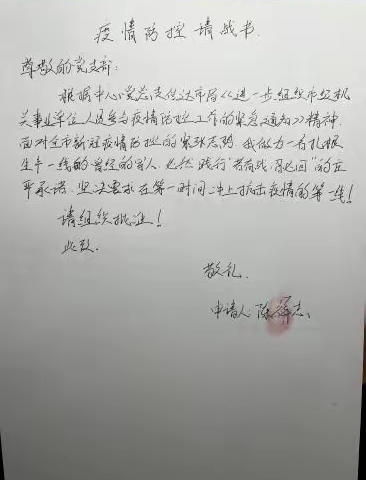 疫情防控请战书
尊敬的党支部：
根据中心党总支传达市局《进一步组织市级机
关事业单位人员参与疫情防控工作的紧急通知》精神，
面对全市新冠疫情防控的紧张态势，我做为一名扎根
生产一线的曾经的军人，必然践行“若有战，召必回”的庄
严承诺，坚决要求在第一时间冲上抗击疫情的第一线！
请组织批准！
此致
敬礼
申请人：陈祥志